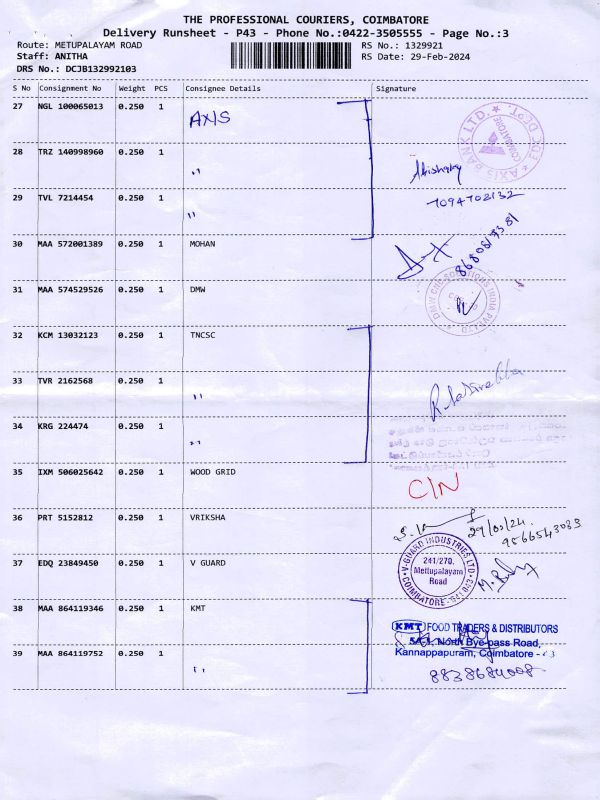 THE PROFESSIONAL COURIERS, COIMBATORE
Delivery Runsheet - P43 - Phone No.:0422-3505555 - Page No.:3
Route: METUPALAYAM ROAD
RS No.: 1329921
Staff: ANITHA
RS Date: 29-Feb-2024
DRS No.: DCJB132992103
S No Consignment No Weight PCS Consignee Details Signature
27 NGL 100065013 0.250 1 AXIS
AXIS BANK LTD. COIMBATORE
28 TRZ 140998960 0.250 1 ,,
29 TVL 7214454 0.250 1 ,,
7094702132
30 MAA 572001389 0.250 1 MOHAN
31 MAA 574529526 0.250 1 DMW
32 KCM 13032123 0.250 1 TNCSC
33 TVR 2162568 0.250 1 ,,
34 KRG 224474 0.250 1 ,,
35 IXM 506025642 0.250 1 WOOD GRID C/N
36 PRT 5152812 0.250 1 VRIKSHA
9566543033
37 EDQ 23849450 0.250 1 V GUARD
V-GUARD INDUSTRIES LTD.
241/270,
Mettupalayam
Road
COIMBATORE
38 MAA 864119346 0.250 1 KMT
KMT FOOD TRADERS & DISTRIBUTORS
North Bye-pass Road,
Kannappapuram, Coimbatore
39 MAA 864119752 0.250 1 ,,
8838684008